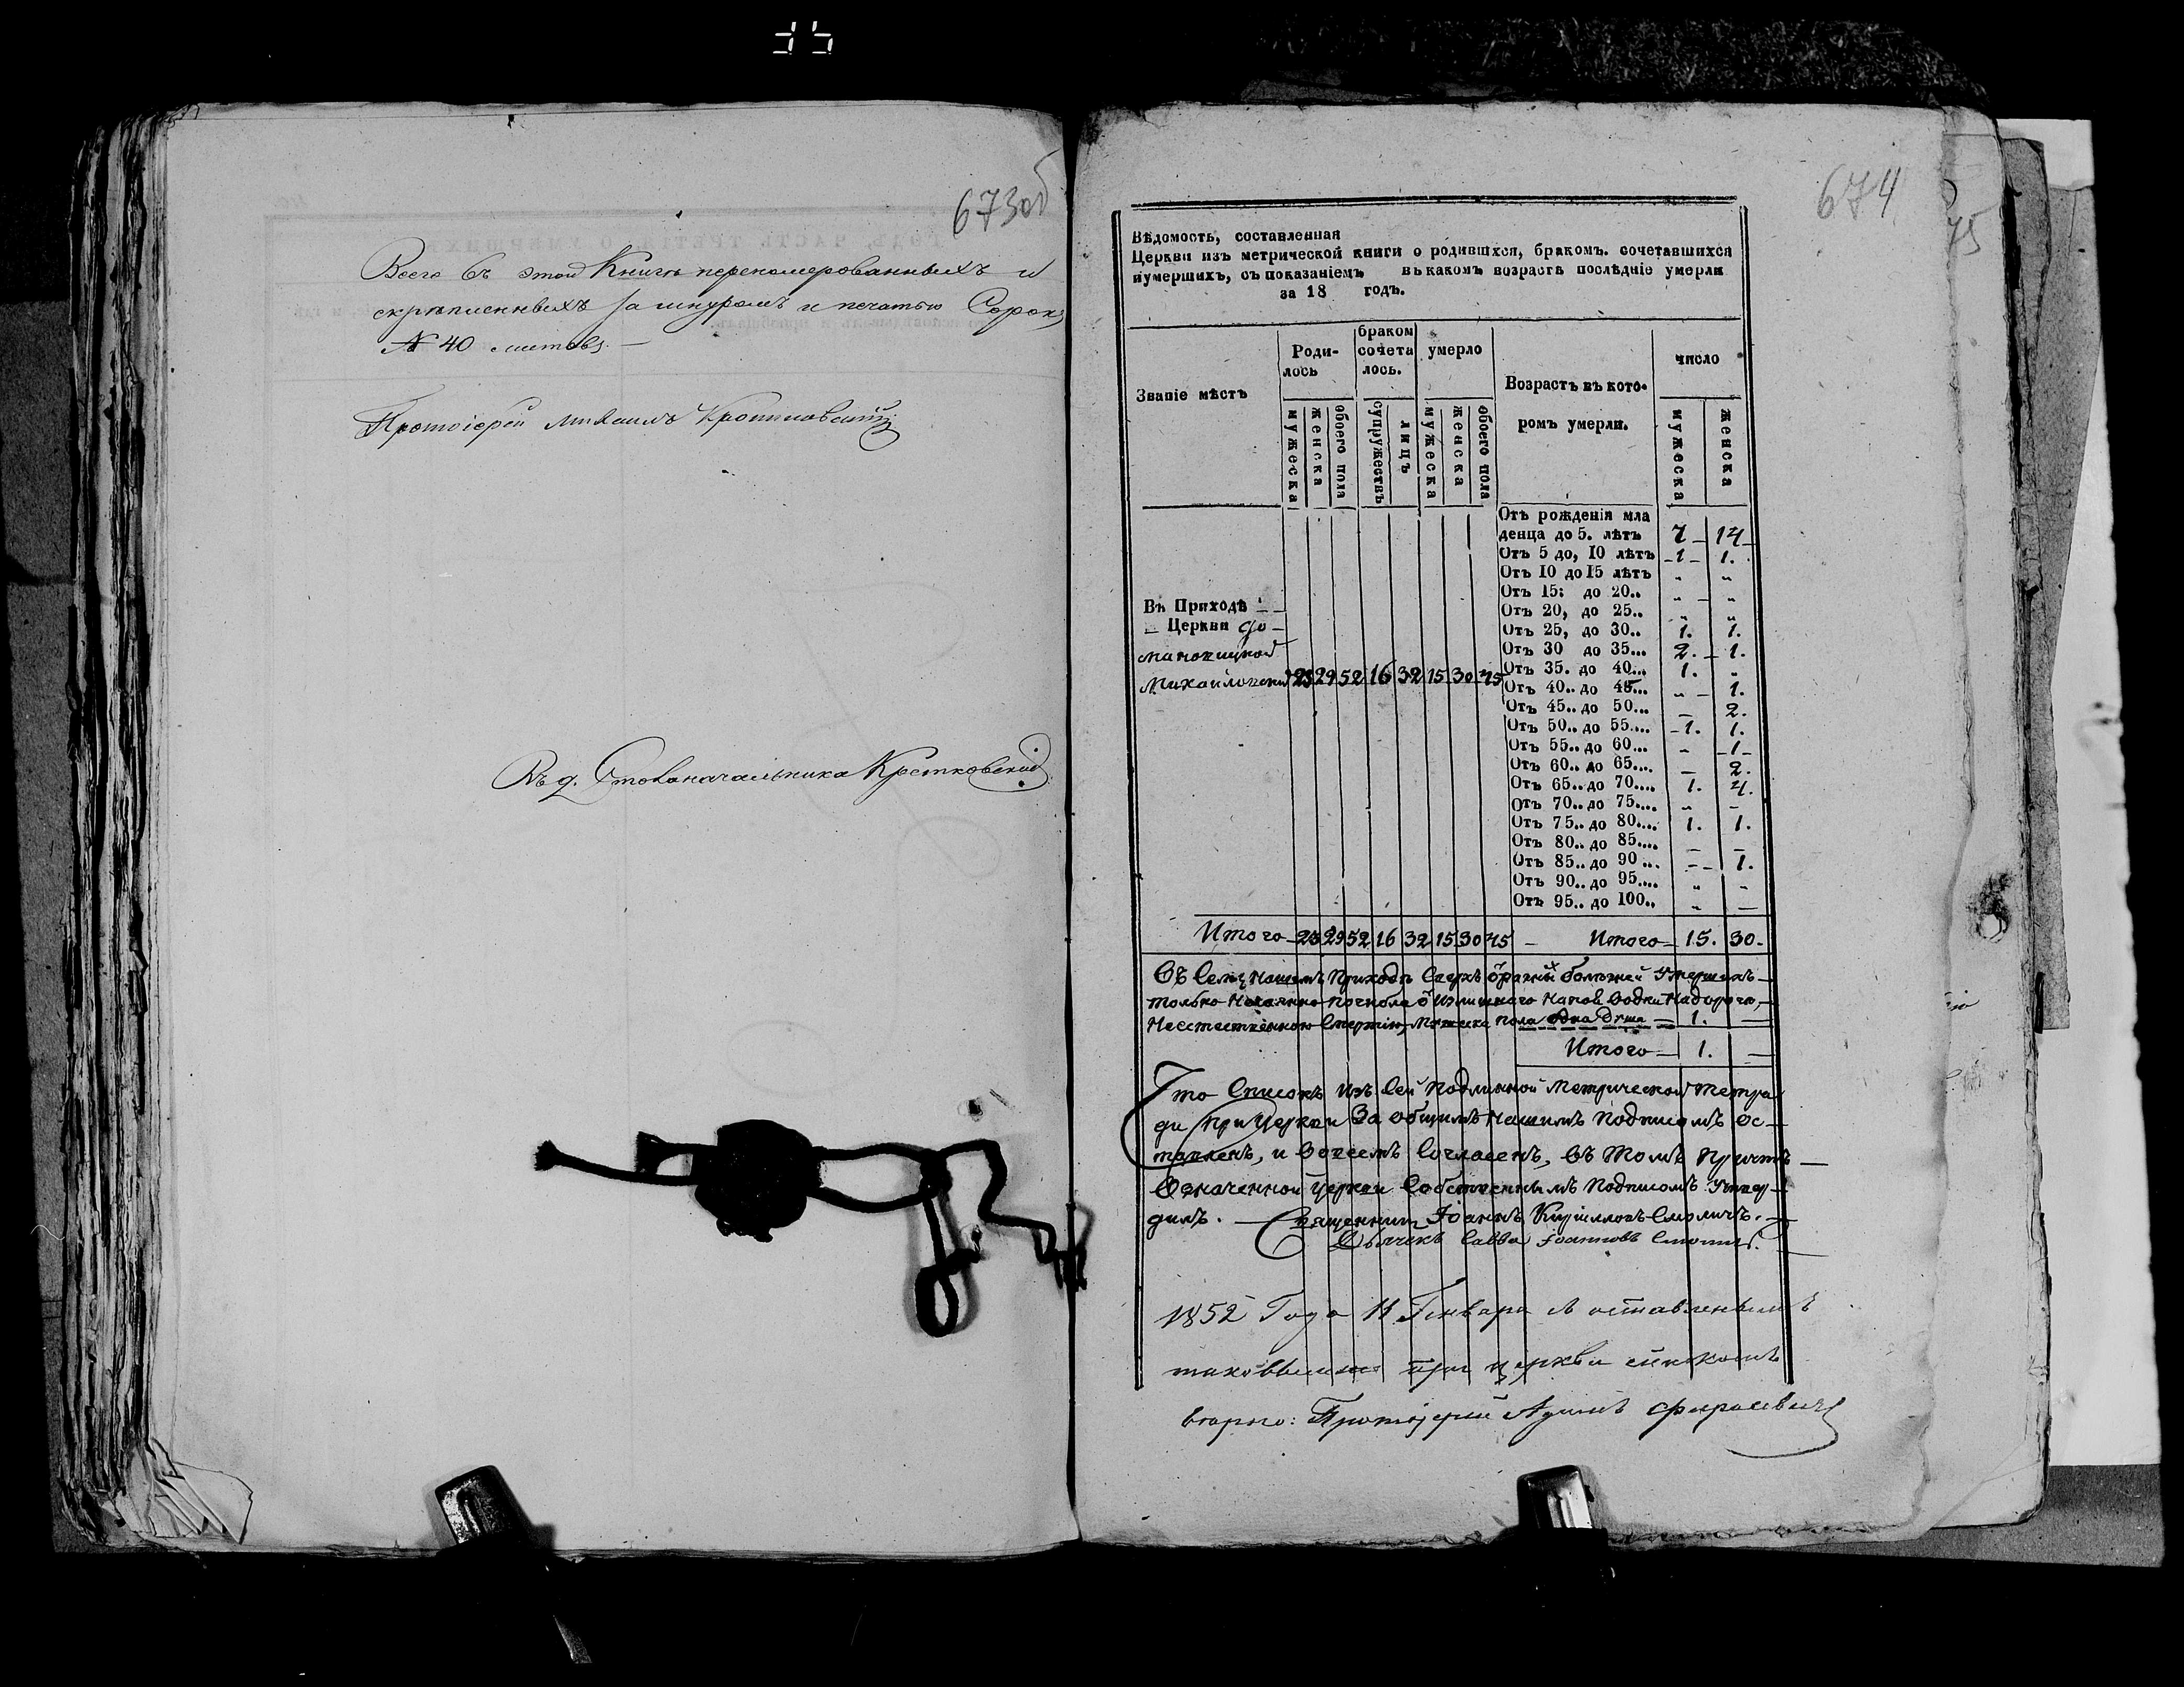 673об
Всего въ этой Книги перенумерованныхъ и
скрѣпленныхъ за шнуромъ и печатью Сорокъ
№ 40 листовъ.
Протоіерей Михаилъ
Въ д. Столоначальника
674
75
Вѣдомость, составленная
Церкви изъ метрической книги о родившхся, бракомъ. сочетавшихся
иумершихъ, съ показаніемъ въ какомъ возрастѣ послѣдніе умерли
за 18 годъ.
Званіе мѣстъ
Роди-
лось
браком
сочета
лось.
умерло
Возрастъ въ кото-
ромъ умерли.
число
мужеска
женска
обоего пола
супружествъ
лицъ
мужеска
женска
обоего пола
мужеска
женска
Отъ рожденія мла
денца до 5. лѣтъ 7 14
Отъ 5 до, 10 лѣтъ 1 1.
Отъ 10 до 15 лѣтъ " "
Отъ 15: до 20.. " "
Отъ 20, до 25.. " "
Отъ 25, до 30.. 1. 1.
Отъ 30 до 35... 2. 1.
Отъ 35. до 40... 1. "
Отъ 40.. до 45... " 1.
Отъ 45.. до 50... – 2.
Отъ 50.. до 55.... 1. 1.
Отъ 55.. до 60... - 1
Отъ 60.. до 65.... – 2.
Отъ 65.. до 70.... 1. 4.
Отъ 70.. до 75.... " –
Отъ 75.. до 80.... 1. 1.
Отъ 80.. до 85.... – –
Отъ 85.. до 90 ... – 1.
Отъ 90.. до 95.... " "
Отъ 95.. до 100.. " —
Въ Приходѣ
Церкви До-
мановицкой
Михайловской 23 29 52 16 32 15 30 45
Итого 23 29 52 16 32 15 30 45 – Итого 15. 30.
Въ Семъ Нашемъ Приходѣ Сверхъ болѣзней Умершихъ
только
Неестественною Смертію, Мужеска пола одна Душа — 1. —
Итого 1. —
Что Списокъ Изъ Сей Подлинной Метрической Тетра
ди При Церкви За общимъ Нашимъ Подписомъ Ос-
тавленъ, и Вовсемъ Согласенъ, Въ Томъ Причтъ
Означенной Церкви Собственнымъ Подписомъ Утвер-
дилъ. — Священникъ Іоаннъ Кирилловъ Смоличъ.
Дьячекъ Савва Іоанновъ Смоличъ.
1852 Года 11 Генваря съ оставленнымъ
таковымъ при церкви спискомъ
вѣрно: Протоіерей Адамъ